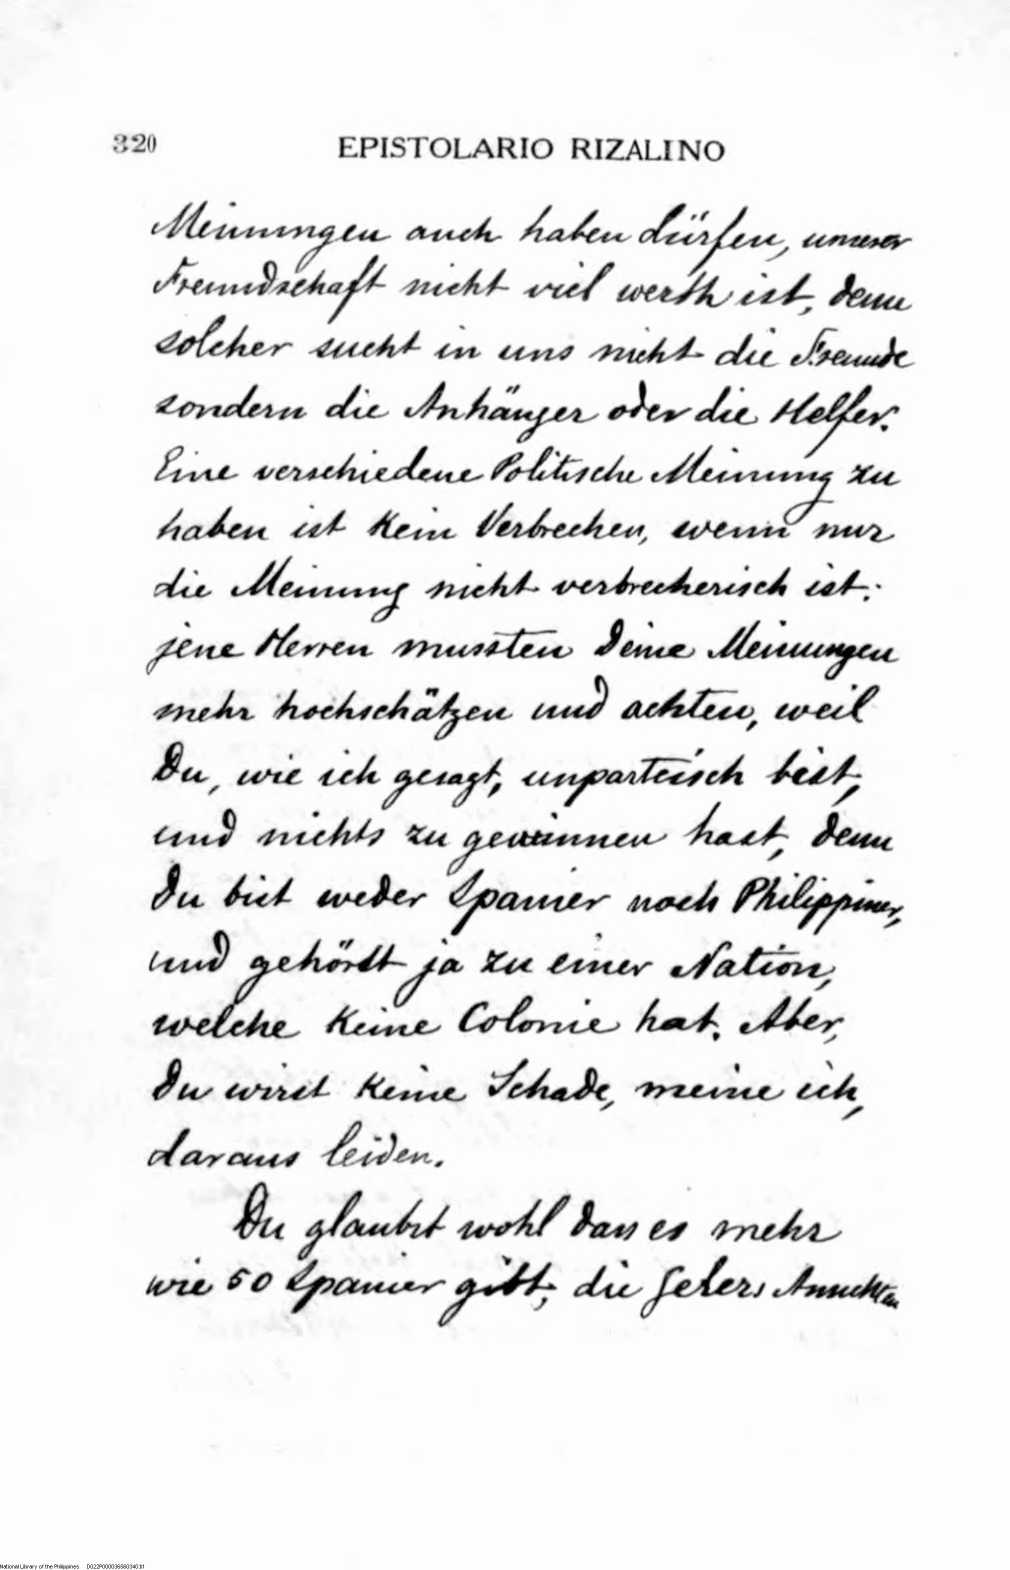 320 EPISTOLARIO RIZALINO
Meinungen auch haben dürfen, unserer
Freundschaft nicht viel werth ist, denn
solcher sucht in uns nicht die Freunde
sondern die Anhänger oder die Helfer.
Eine verschiedene Politische Meinung zu
haben ist kein Verbrechen, wenn nur
die Meinung nicht verbrecherisch ist.
jene Herren mussten Deine Meinungen
mehr hochschätzen und achten, weil
Du, wie ich gesagt, unparteisch bist,
und nichts zu gewinnen hast, denn
Du bist weder Spanier noch Philippiner,
und gehörst ja zu einer Nation,
welche keine Colonie hat. Aber,
Du wirst keine Schade, meine ich,
daraus leiden.
Du glaubst wohl dass es mehr
wie 50 Spanier gibt, die Ansichten
National Library of the Philippines